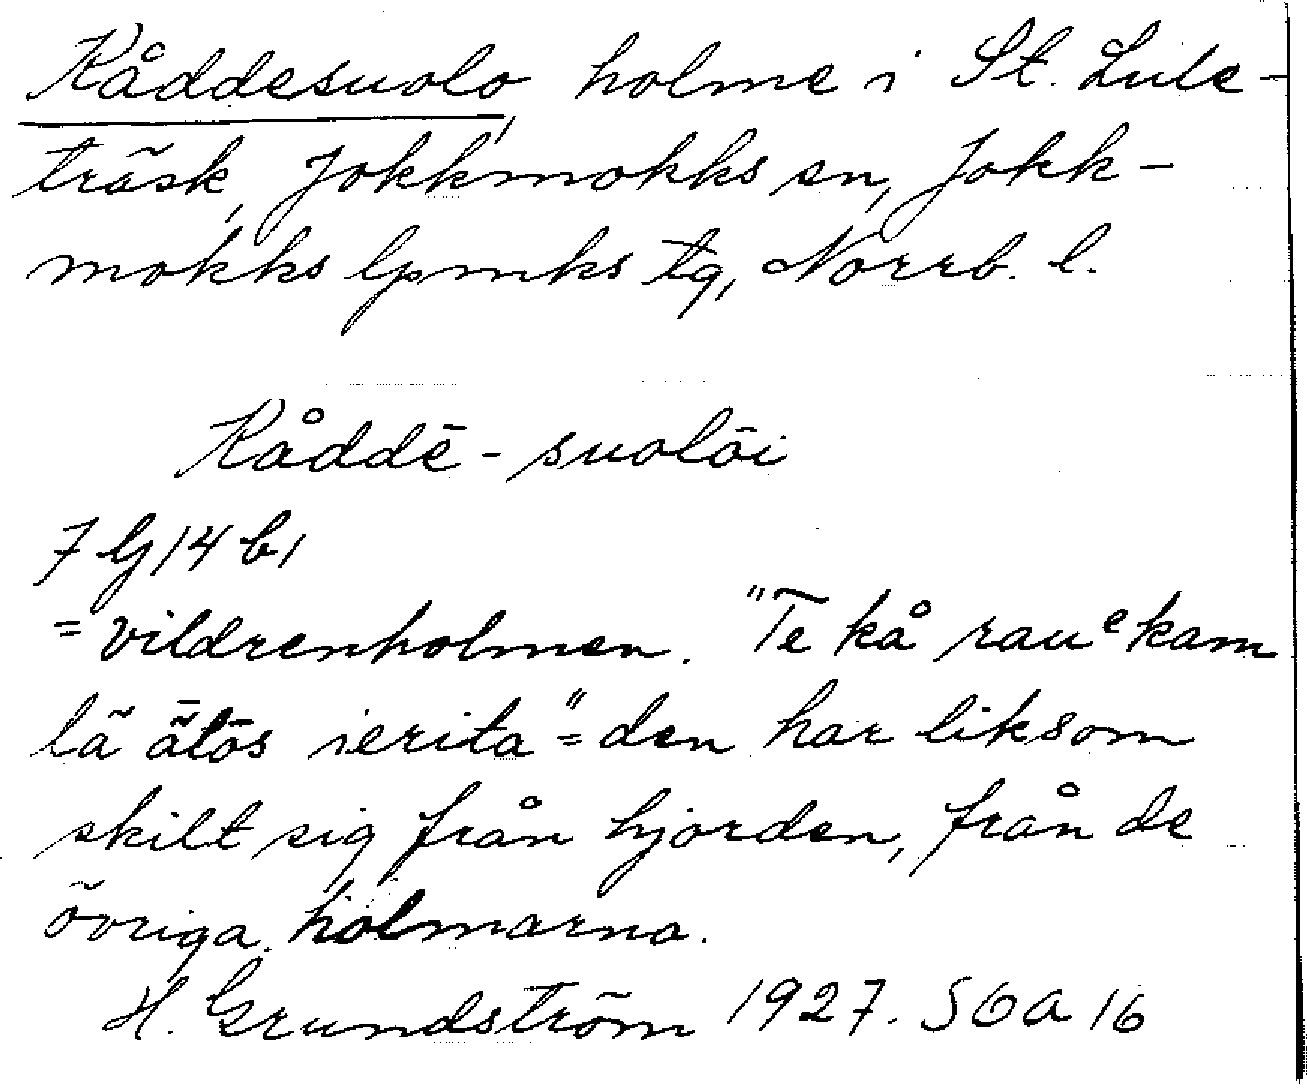 Kåddesuolo, holme i St. Lule-
träsk, Jokkmokks sn, Jokk-
mokks lpmks tg, Norrb. l.
Kåddē-suolōi
7 G 14 b,
= vildrenholmen. "Te kå rauᵉkam
lä ātōs ierita" = den har liksom
skilt sig från hjorden, från de
övriga holmarna.
H. Grundström 1927. SOA 16